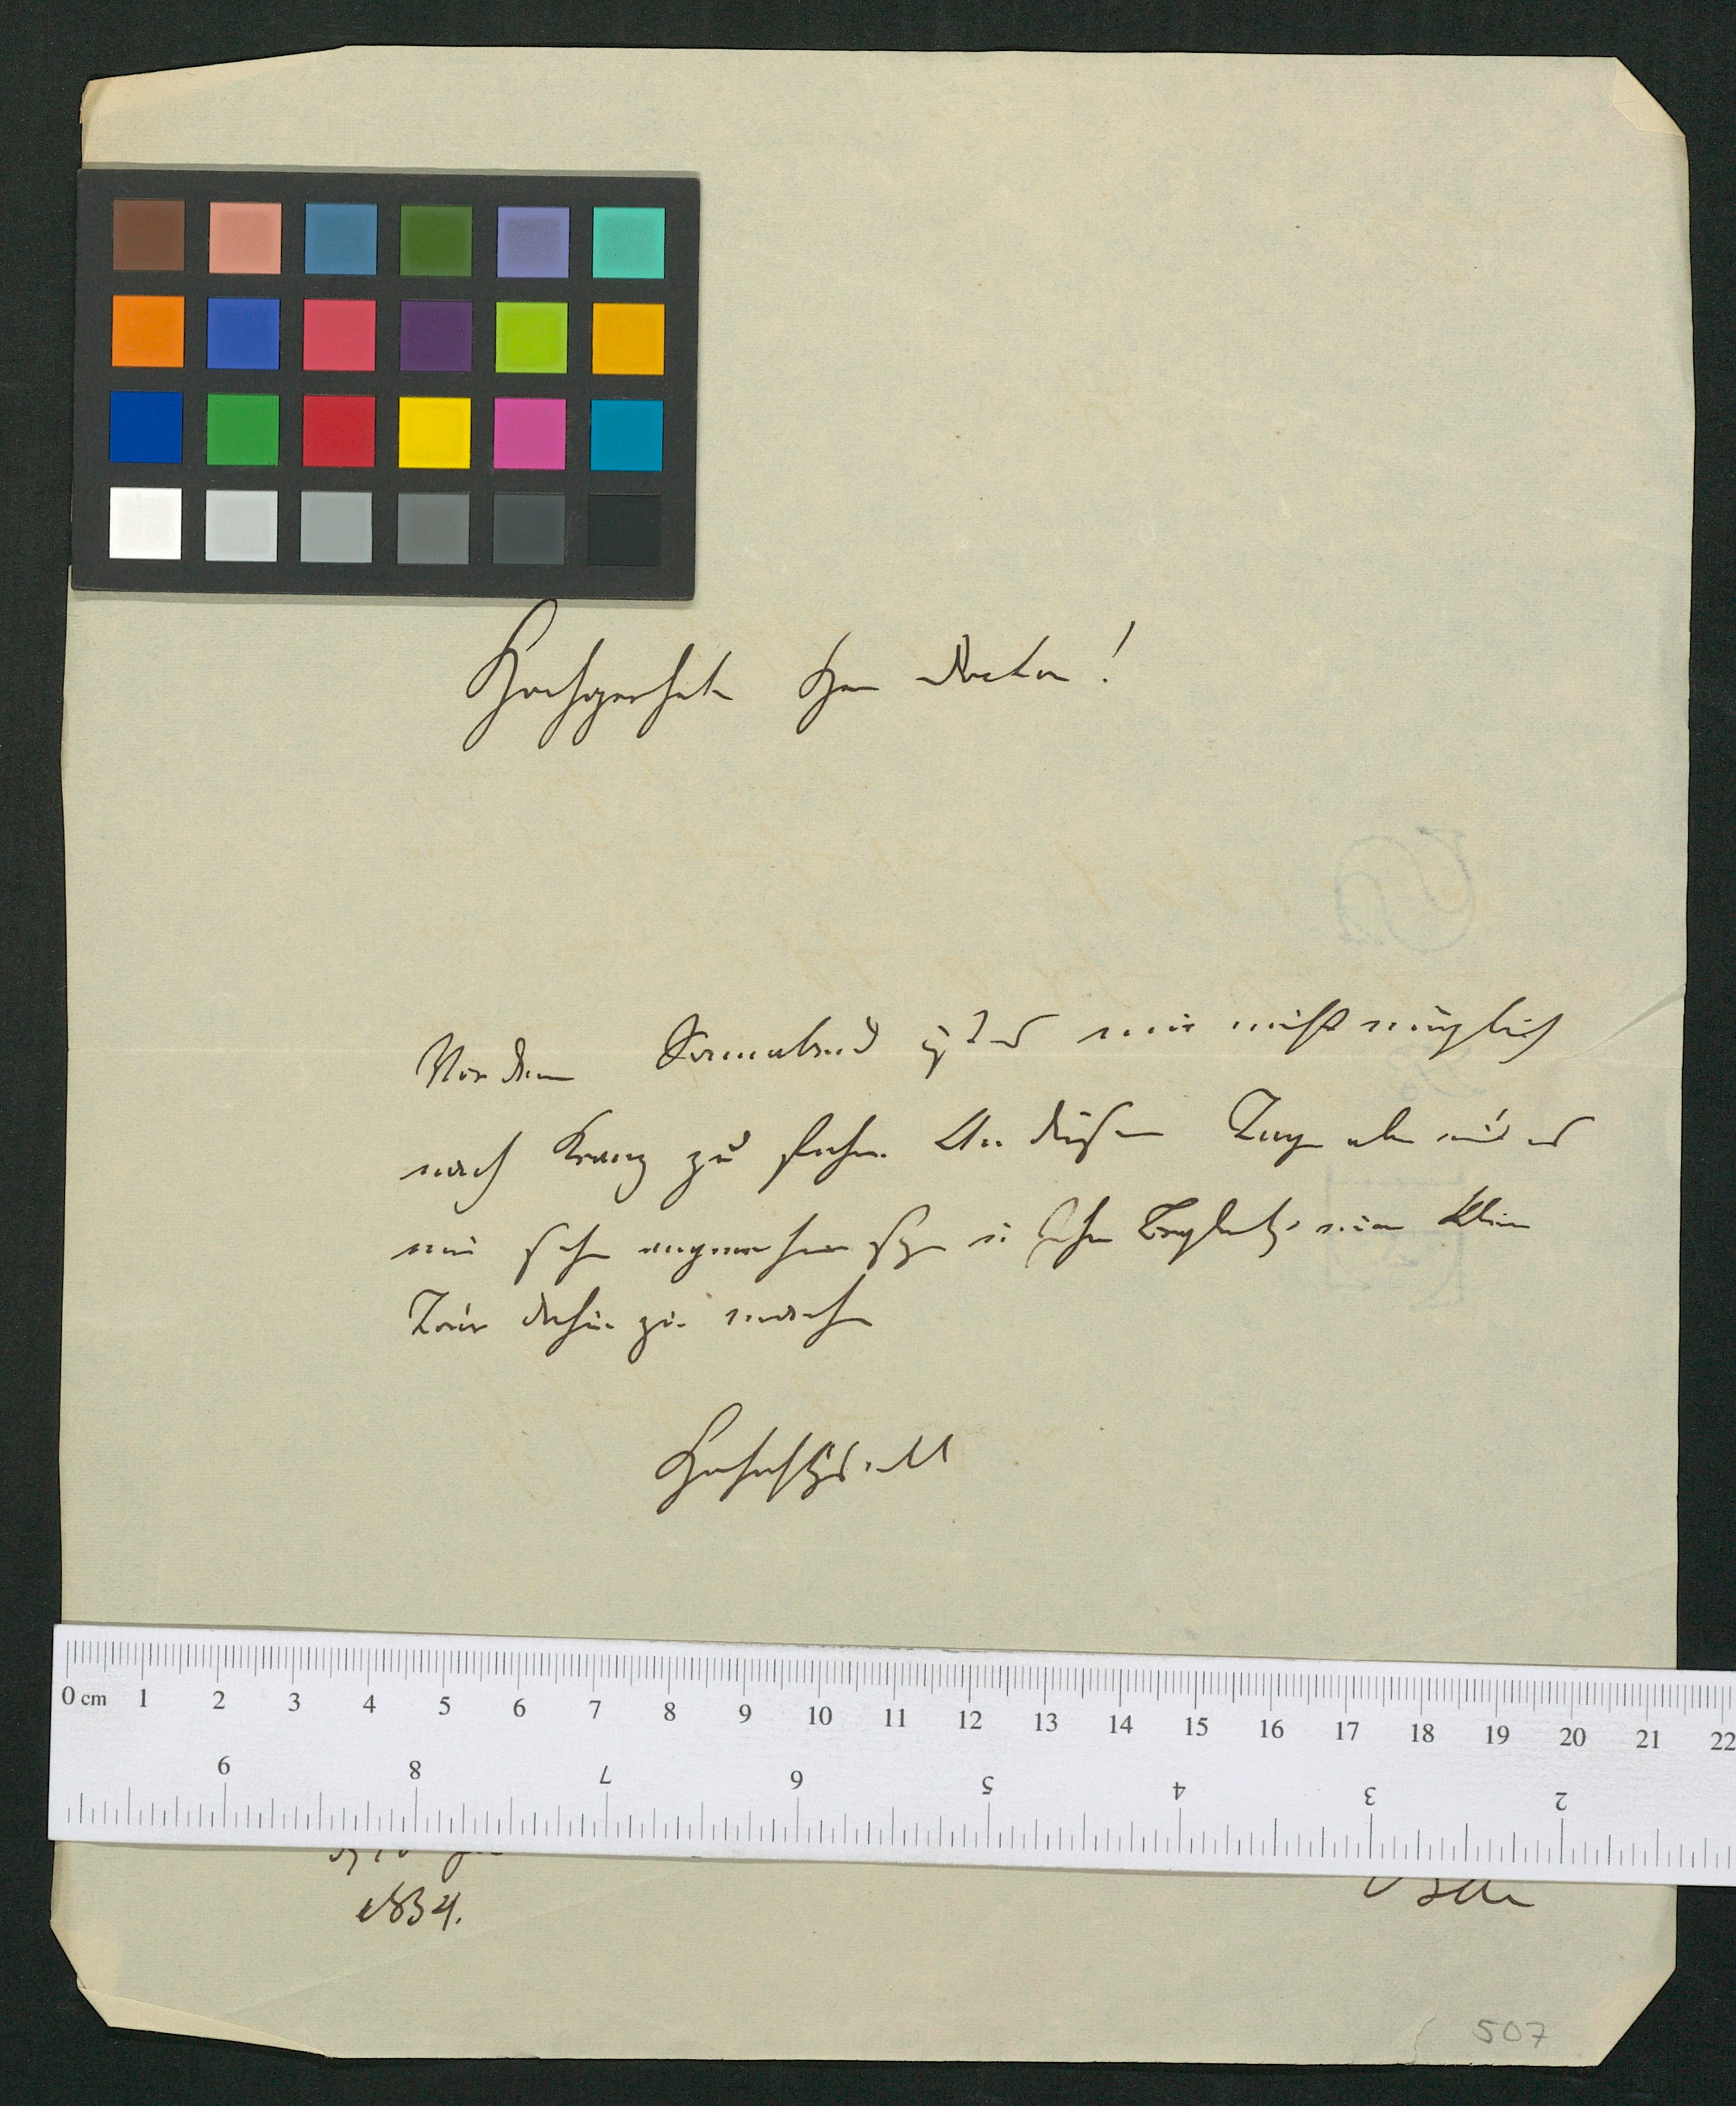 Hochgeehrter Herr Doctor!
Vor dem Sonnabend ist es mir nicht möglich
nach Kranz zu fahren. An diesem Tage aber wird es
mir sehr angenehm seyn in Ihrer Begleitung eine kleine
Tour dahin zu machen
Hochachtungsvoll
0 cm 1 2 3 4 5 6 7 8 9 10 11 12 13 14 15 16 17 18 19 20 21 22
9 8 7 6 5 4 3 2
1834.
507